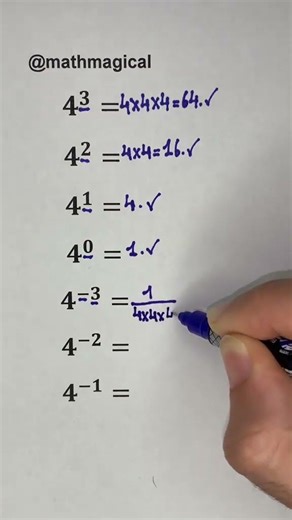 @mathmagical
4³ = 4×4×4 = 64. ✓
4² = 4×4 = 16. ✓
4¹ = 4. ✓
4⁰ = 1. ✓
4⁻³ = 1/(4×4×4
4⁻² =
4⁻¹ =